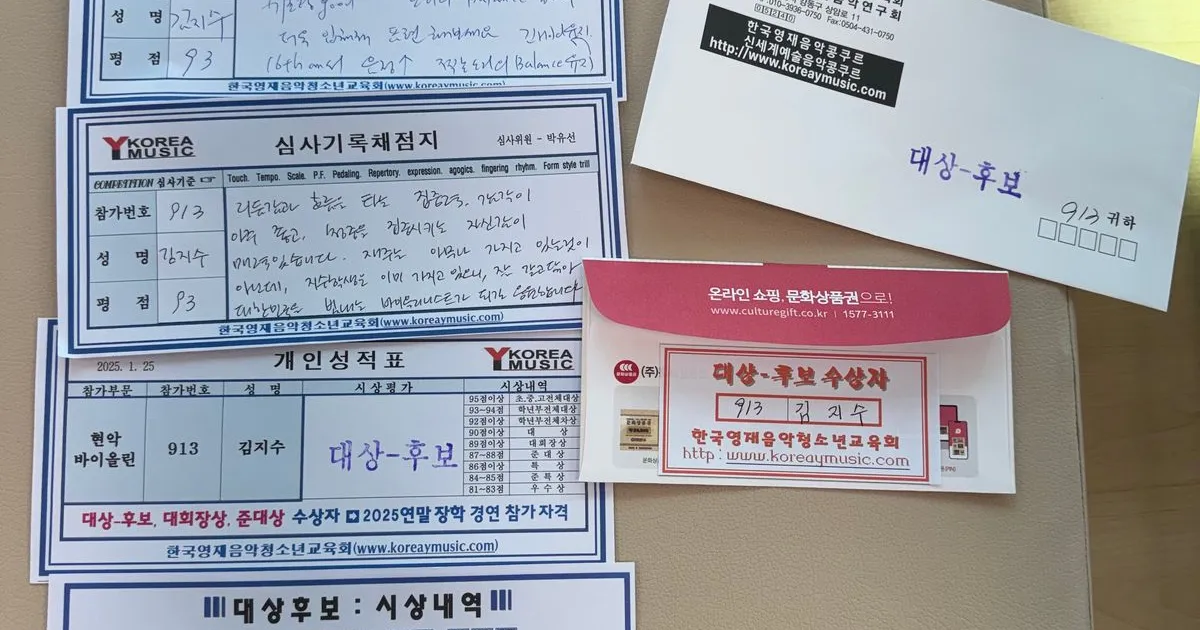 성 명 김지수
더욱
Balance유지)
평 점 93
한국영재음악청소년교육회(www.koreaymusic.com)
YKOREA MUSIC
심사기록채점지
심사위원 - 박유선
COMPETITION 심사기준
Touch. Tempo. Scale. P.F. Pedaling. Repertory. expression. agogics. fingering rhyhm. Form style trill
참가번호 913
성 명 김지수
평 점 93
리듬감과 호흡을 타는 집중력, 감각이
아주 좋고, 청중을 집중시키는 자신감이
매력있습니다. 재주는 아무나 가지고 있는것이
아닌데, 지수학생은 이미 가지고 있으니, 잘 갈고닦아
대한민국을 빛내는 바이올리니스트가 되길 응원합니다
한국영재음악청소년교육회(www.koreaymusic.com)
2025. 1. 25
개인성적표
YKOREA MUSIC
참가부문 참가번호 성 명 시상평가 시상내역
현악
바이올린
913
김지수
대상-후보
95점이상 초.중.고전체대상
93~94점 학년부전체대상
92점이상 학년부전체차상
90점이상 대 상
89점이상 대회장상
87~88점 준 대 상
86점이상 특 상
84~85점 준 특 상
81~83점 우 수 상
대상-후보, 대회장상, 준대상 수상자 2025연말 장학 경연 참가 자격
한국영재음악청소년교육회(www.koreaymusic.com)
대상후보 : 시상내역
음악연구회
강동구 상암로 11
010-3936-0750 Fax:0504-431-0750
05240
한국영재음악콩쿠르
신세계예술음악콩쿠르
http://www.koreaymusic.com
대상-후보
913 귀하
온라인 쇼핑, 문화상품권으로!
www.culturegift.co.kr | 1577-3111
(주)
대상-후보 수상자
913 김지수
한국영재음악청소년교육회
http : www.koreaymusic.com